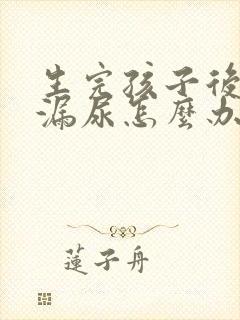 生完孩子後
漏尿怎麼办
蓮子舟